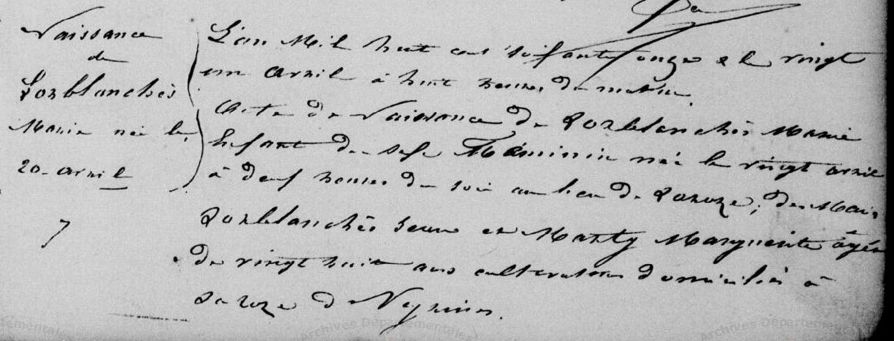 Naissance
de
Lonblanchès
Marie née le
20 avril
7
L'an Mil huit cent soixante onze & le vingt
un avril à huit heures du matin.
Acte de Naissance de Lonblanchès Marie
Enfant de sexe Féminin née le vingt avril
à deux heures du soir au lieu de Laroze; de Mari
Lonblanchès Jean et Marty Marguerite âgés
de vingt huit ans cultivateurs domiciliés à
Laroze de
Archives Départementales